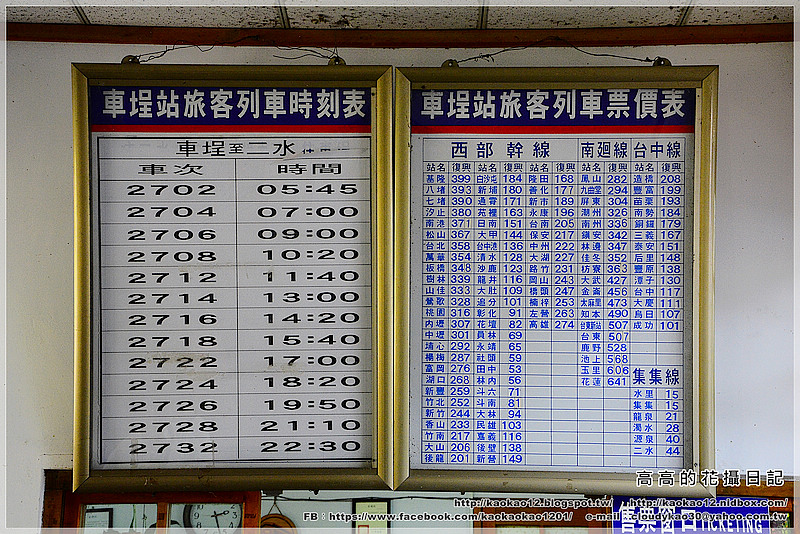 車埕站旅客列車時刻表
車埕至二水
車次 時間
2702 05:45
2704 07:00
2706 09:00
2708 10:20
2712 11:40
2714 13:00
2716 14:20
2718 15:40
2722 17:00
2724 18:20
2726 19:50
2728 21:10
2732 22:30
車埕站旅客列車票價表
西部幹線 南迴線 台中線
站名 復興 站名 復興 站名 復興 站名 復興 站名 復興
基隆 399 白沙屯 184 隆田 168 鳳山 282 造橋 208
八堵 393 新埔 180 善化 177 九曲堂 294 豐富 199
七堵 390 通霄 171 新市 189 屏東 304 苗栗 193
汐止 380 苑裡 163 永康 196 潮州 326 南勢 184
南港 371 日南 151 台南 205 南州 336 銅鑼 179
松山 367 大甲 144 保安 217 鎮安 342 三義 167
台北 358 台中港 136 中洲 222 林邊 347 泰安 151
萬華 354 清水 128 大湖 227 佳冬 352 后里 148
板橋 348 沙鹿 123 路竹 231 枋寮 363 豐原 138
樹林 339 龍井 116 岡山 243 大武 427 潭子 130
山佳 333 大肚 109 橋頭 247 金崙 456 台中 117
鶯歌 328 追分 101 楠梓 253 太麻里 473 大慶 111
桃園 316 彰化 91 左營 263 知本 490 烏日 107
內壢 307 花壇 82 高雄 274 台東新站 507 成功 101
中壢 301 員林 69 台東 507
埔心 292 永靖 65 鹿野 528
楊梅 287 社頭 59 池上 568
富岡 276 田中 53 玉里 606 集集線
湖口 268 林內 56 花蓮 641
新豐 259 斗六 71 水里 15
竹北 252 斗南 81 集集 15
新竹 244 大林 94 龍泉 21
香山 233 民雄 103 濁水 28
竹南 217 嘉義 116 源泉 40
大山 206 後壁 138 二水 44
後龍 201 新營 149
高高的花攝日記
http://kaokao12.blogspot.tw/ http://kaokao12.nidbox.com/
FB：https://www.facebook.com/kaokaokao1201/ e-mail：cloudykao30@yahoo.com.tw
售票窗口 TICKETING